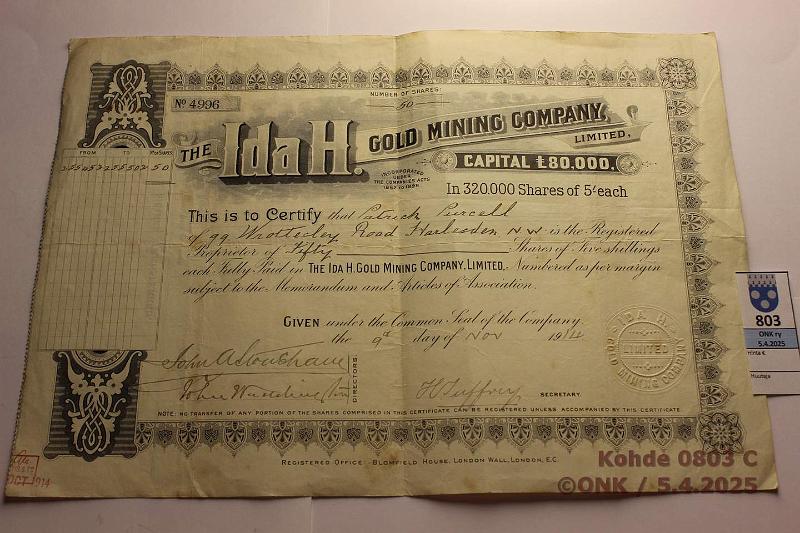 NUMBER OF SHARES:
50
No 4996
THE Ida H. GOLD MINING COMPANY, LIMITED.
INCORPORATED UNDER THE COMPANIES ACTS
CAPITAL £80,000.
In 320,000 Shares of 5/- each
FROM TO No OF SHARES
50
This is to Certify that Patrick Purcell
of 99 Wrottesley Road Harlesden N W is the Registered
Proprietor of Fifty Shares of Five shillings
each Fully Paid in THE IDA H. GOLD MINING COMPANY, LIMITED. Numbered as per margin
subject to the Memorandum and Articles of Association.
GIVEN under the Common Seal of the Company
the 9th day of Nov 1914
IDA H.
LIMITED
GOLD MINING COMPANY
DIRECTORS
John Waddington
SECRETARY.
NOTE: NO TRANSFER OF ANY PORTION OF THE SHARES COMPRISED IN THIS CERTIFICATE CAN BE REGISTERED UNLESS ACCOMPANIED BY THIS CERTIFICATE.
REGISTERED OFFICE - BLOMFIELD HOUSE, LONDON WALL, LONDON, E.C.
OCT 1914
803
ONK ry
5.4.2025
Hinta €
Huutaja
Kohde 0803 C
©ONK / 5.4.2025